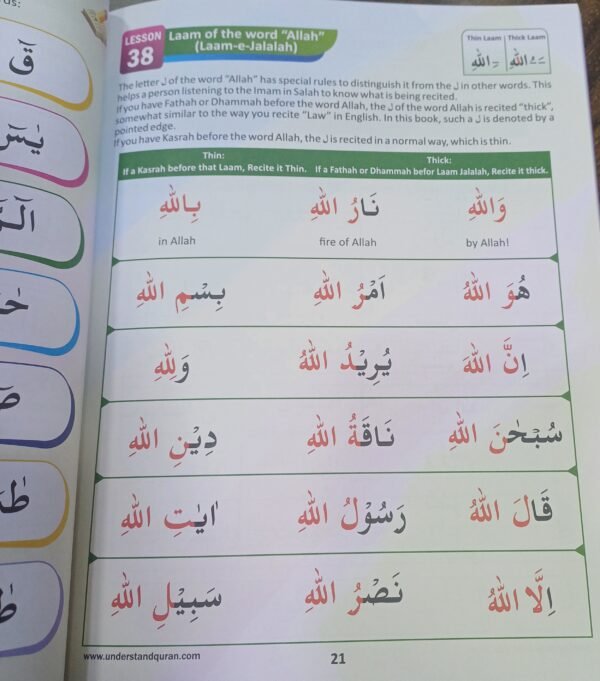 LESSON
38
Laam of the word "Allah"
(Laam-e-Jalalah)
Thin Laam | Thick Laam
The letter ل of the word "Allah" has special rules to distinguish it from the ل in other words. This
helps a person listening to the Imam in Salah to know what is being recited.
If you have Fathah or Dhammah before the word Allah, the ل of the word Allah is recited "thick",
somewhat similar to the way you recite "Law" in English. In this book, such a ل is denoted by a
pointed edge.
If you have Kasrah before the word Allah, the ل is recited in a normal way, which is thin.
Thin:
If a Kasrah before that Laam, Recite it Thin.
Thick:
If a Fathah or Dhammah befor Laam Jalalah, Recite it thick.
وَاللهِ نَارُ اللهِ بِاللهِ
by Allah! fire of Allah in Allah
هُوَ اللهُ اَمْرُ اللهِ بِسْمِ اللهِ
اِنَّ اللهَ يُرِيْدُ اللهُ وَلِلهِ
سُبْحٰنَ اللهِ نَاقَةُ اللهِ دِيْنِ اللهِ
قَالَ اللهُ رَسُوْلُ اللهِ اٰيٰتِ اللهِ
اِلَّا اللهُ نَصْرُ اللهِ سَبِيْلِ اللهِ
www.understandquran.com
21